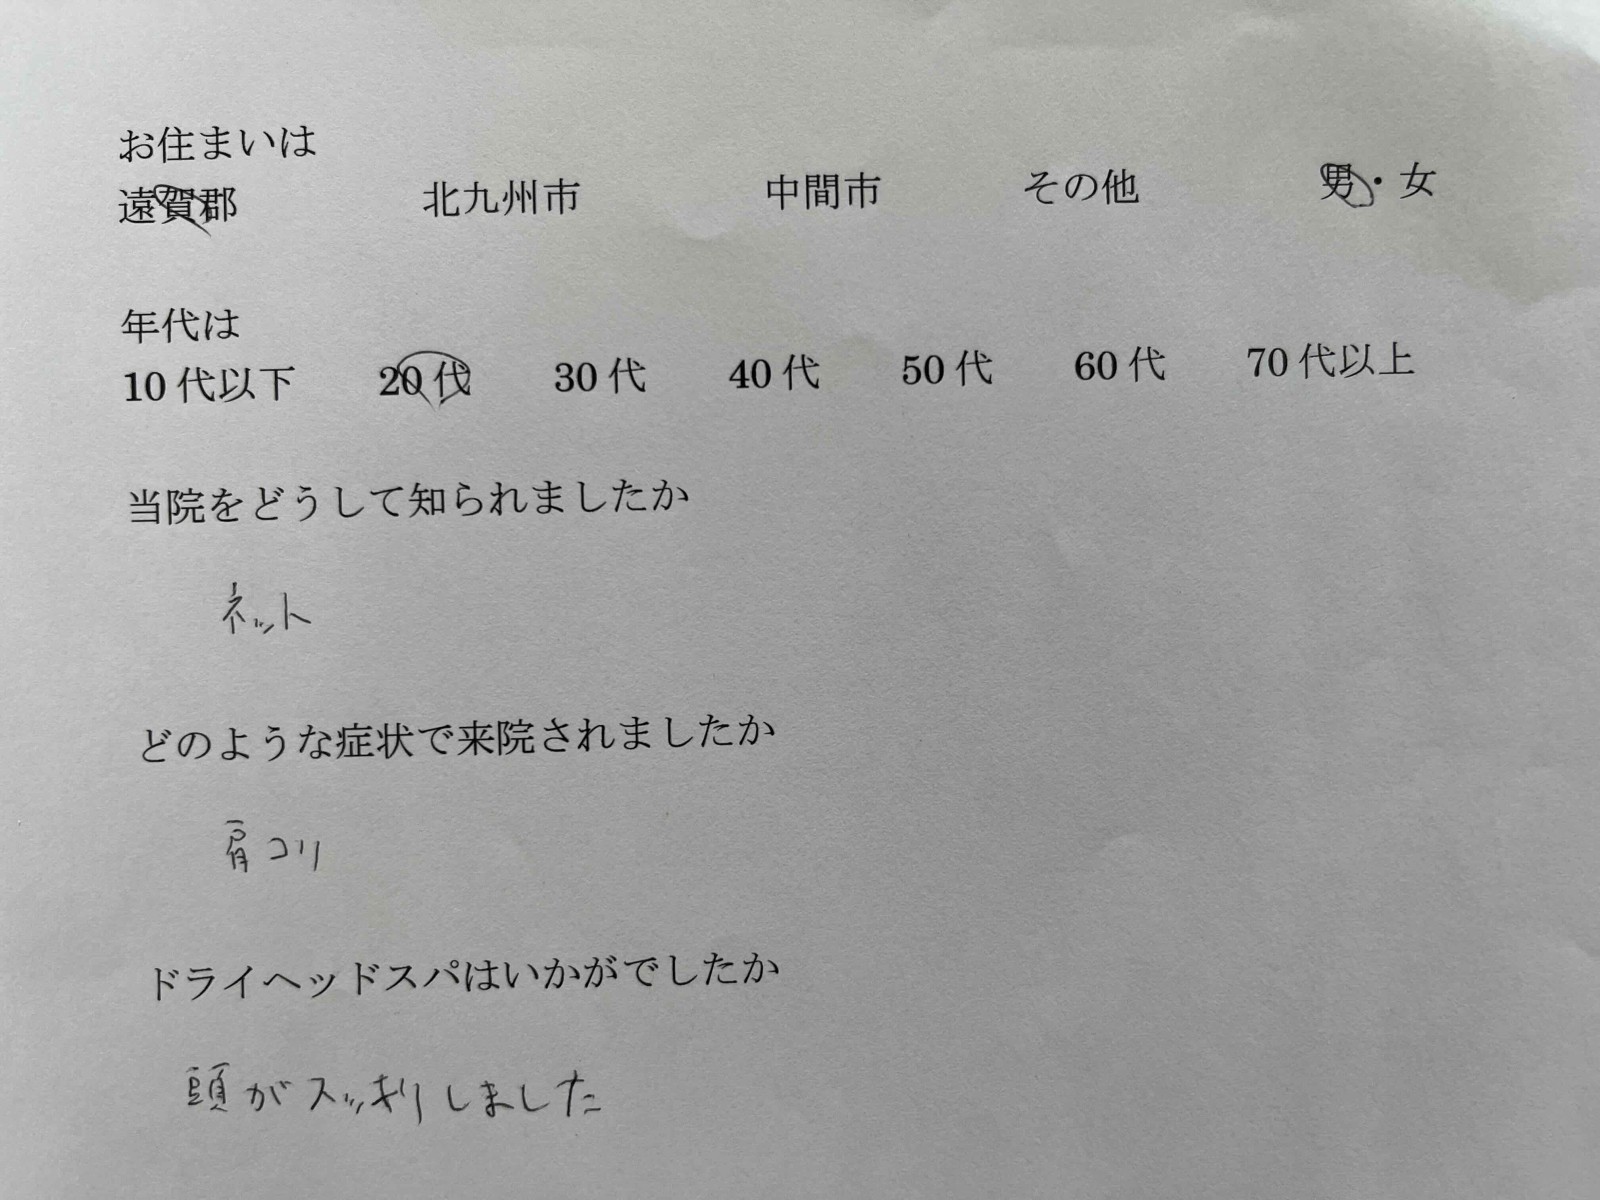 お住まいは
遠賀郡 北九州市 中間市 その他 男・女
年代は
10代以下 20代 30代 40代 50代 60代 70代以上
当院をどうして知られましたか
ネット
どのような症状で来院されましたか
肩コリ
ドライヘッドスパはいかがでしたか
頭がスッキリしました